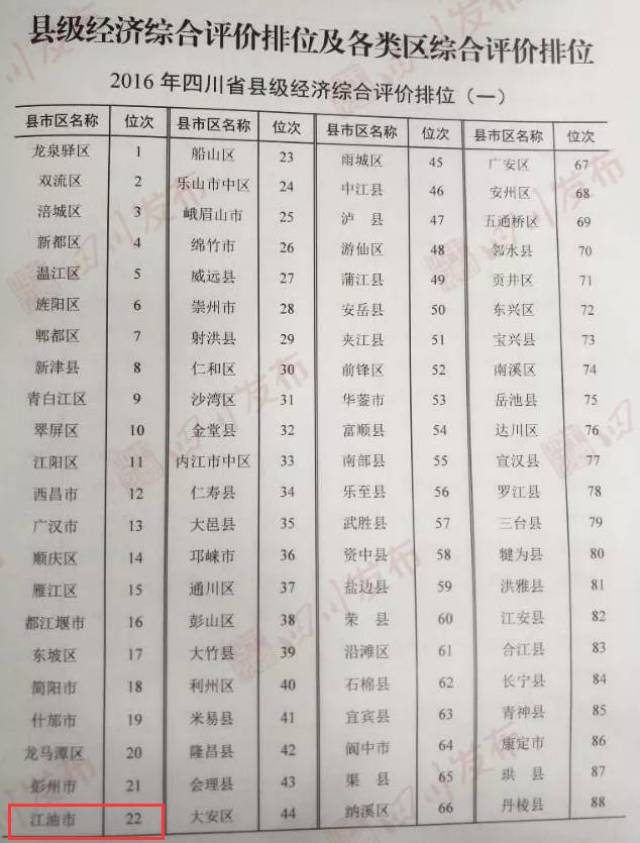 县级经济综合评价排位及各类区综合评价排位
2016 年四川省县级经济综合评价排位（一）
县市区名称 位次 县市区名称 位次 县市区名称 位次 县市区名称 位次
龙泉驿区 1 船山区 23 雨城区 45 广安区 67
双流区 2 乐山市中区 24 中江县 46 安州区 68
涪城区 3 峨眉山市 25 泸县 47 五通桥区 69
新都区 4 绵竹市 26 游仙区 48 邻水县 70
温江区 5 威远县 27 蒲江县 49 贡井区 71
旌阳区 6 崇州市 28 安岳县 50 东兴区 72
郫都区 7 射洪县 29 夹江县 51 宝兴县 73
新津县 8 仁和区 30 前锋区 52 南溪区 74
青白江区 9 沙湾区 31 华蓥市 53 岳池县 75
翠屏区 10 金堂县 32 富顺县 54 达川区 76
江阳区 11 内江市中区 33 南部县 55 宣汉县 77
西昌市 12 仁寿县 34 乐至县 56 罗江县 78
广汉市 13 大邑县 35 武胜县 57 三台县 79
顺庆区 14 邛崃市 36 资中县 58 犍为县 80
雁江区 15 通川区 37 盐边县 59 洪雅县 81
都江堰市 16 彭山区 38 荣县 60 江安县 82
东坡区 17 大竹县 39 沿滩区 61 合江县 83
简阳市 18 利州区 40 石棉县 62 长宁县 84
什邡市 19 米易县 41 宜宾县 63 青神县 85
龙马潭区 20 隆昌县 42 阆中市 64 康定市 86
彭州市 21 会理县 43 渠县 65 珙县 87
江油市 22 大安区 44 纳溪区 66 丹棱县 88
四川发布
四川发布
四川发布
四川发布
四川发布